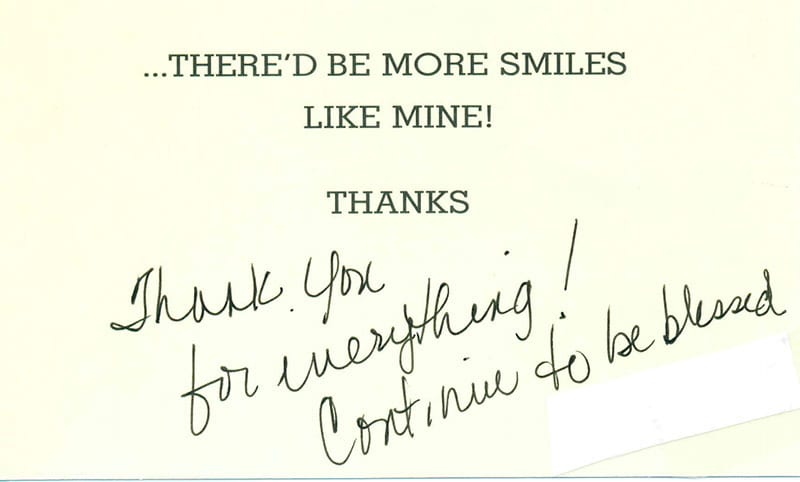 ...THERE'D BE MORE SMILES
LIKE MINE!
THANKS
Thank You
for everything!
Continue to be blessed